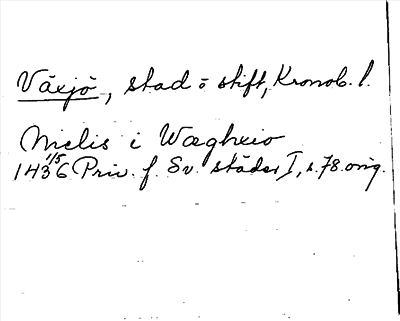 Växjö, stad o stift, Kronob. l.
Nielis i Wæghxio
1436 1/5 Priv. f. Sv. städer I, s. 78. orig.